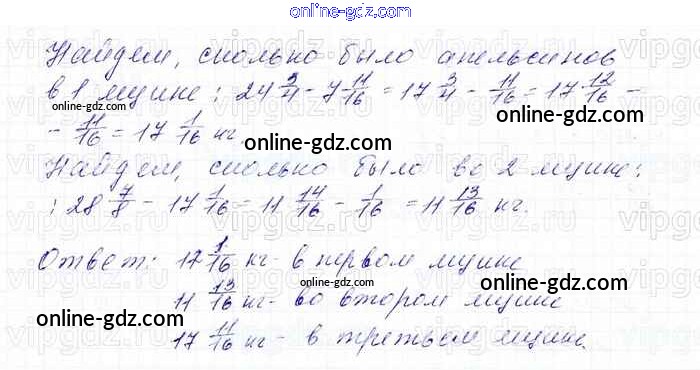 online-gdz.com
Найдем, сколько было апельсинов
в 1 ящике: 24 3/4 - 7 11/16 = 17 3/4 - 11/16 = 17 12/16 -
- 11/16 = 17 1/16 кг
online-gdz.com
online-gdz.com
online-gdz.com
Найдем, сколько было во 2 ящике:
: 28 7/8 - 17 1/16 = 11 14/16 - 1/16 = 11 13/16 кг.
online-gdz.com
online-gdz.com
Ответ: 17 1/16 кг - в первом ящике
11 13/16 кг - во втором ящике
online-gdz.com
online-gdz.com
online-gdz.com
17 11/16 кг - в третьем ящике.